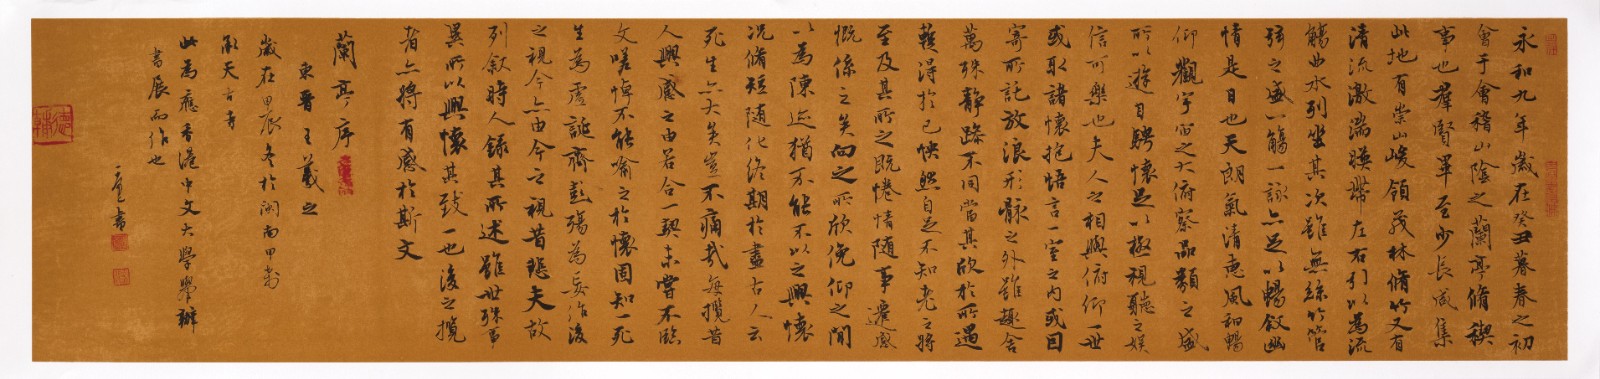 永和九年歲在癸丑暮春之初
會于會稽山陰之蘭亭脩稧
事也羣賢畢至少長咸集
此地有崇山峻領茂林脩竹又有
清流激湍暎帶左右引以為流
觴曲水列坐其次雖無絲竹管
弦之盛一觴一詠亦足以暢敘幽
情是日也天朗氣清惠風和暢
仰觀宇宙之大俯察品類之盛
所以遊目騁懷足以極視聽之娛
信可樂也夫人之相與俯仰一世
或取諸懷抱悟言一室之內或因
寄所託放浪形骸之外雖趣舍
萬殊靜躁不同當其欣於所遇
蹔得於己怏然自足不知老之將
至及其所之既惓情隨事遷感
慨係之矣向之所欣俛仰之間
以為陳迹猶不能不以之興懷
況脩短隨化終期於盡古人云
死生亦大矣豈不痛哉每攬昔
人興感之由若合一契未嘗不臨
文嗟悼不能喻之於懷固知一死
生為虛誕齊彭殤為妄作後
之視今亦由今之視昔悲夫故
列敘時人錄其所述雖世殊事
異所以興懷其致一也後之攬
者亦將有感於斯文
蘭亭序
東晉王羲之
歲在甲辰冬於湖南甲嵩
承天古寺
此為應香港中文大學舉辦
書展而作也